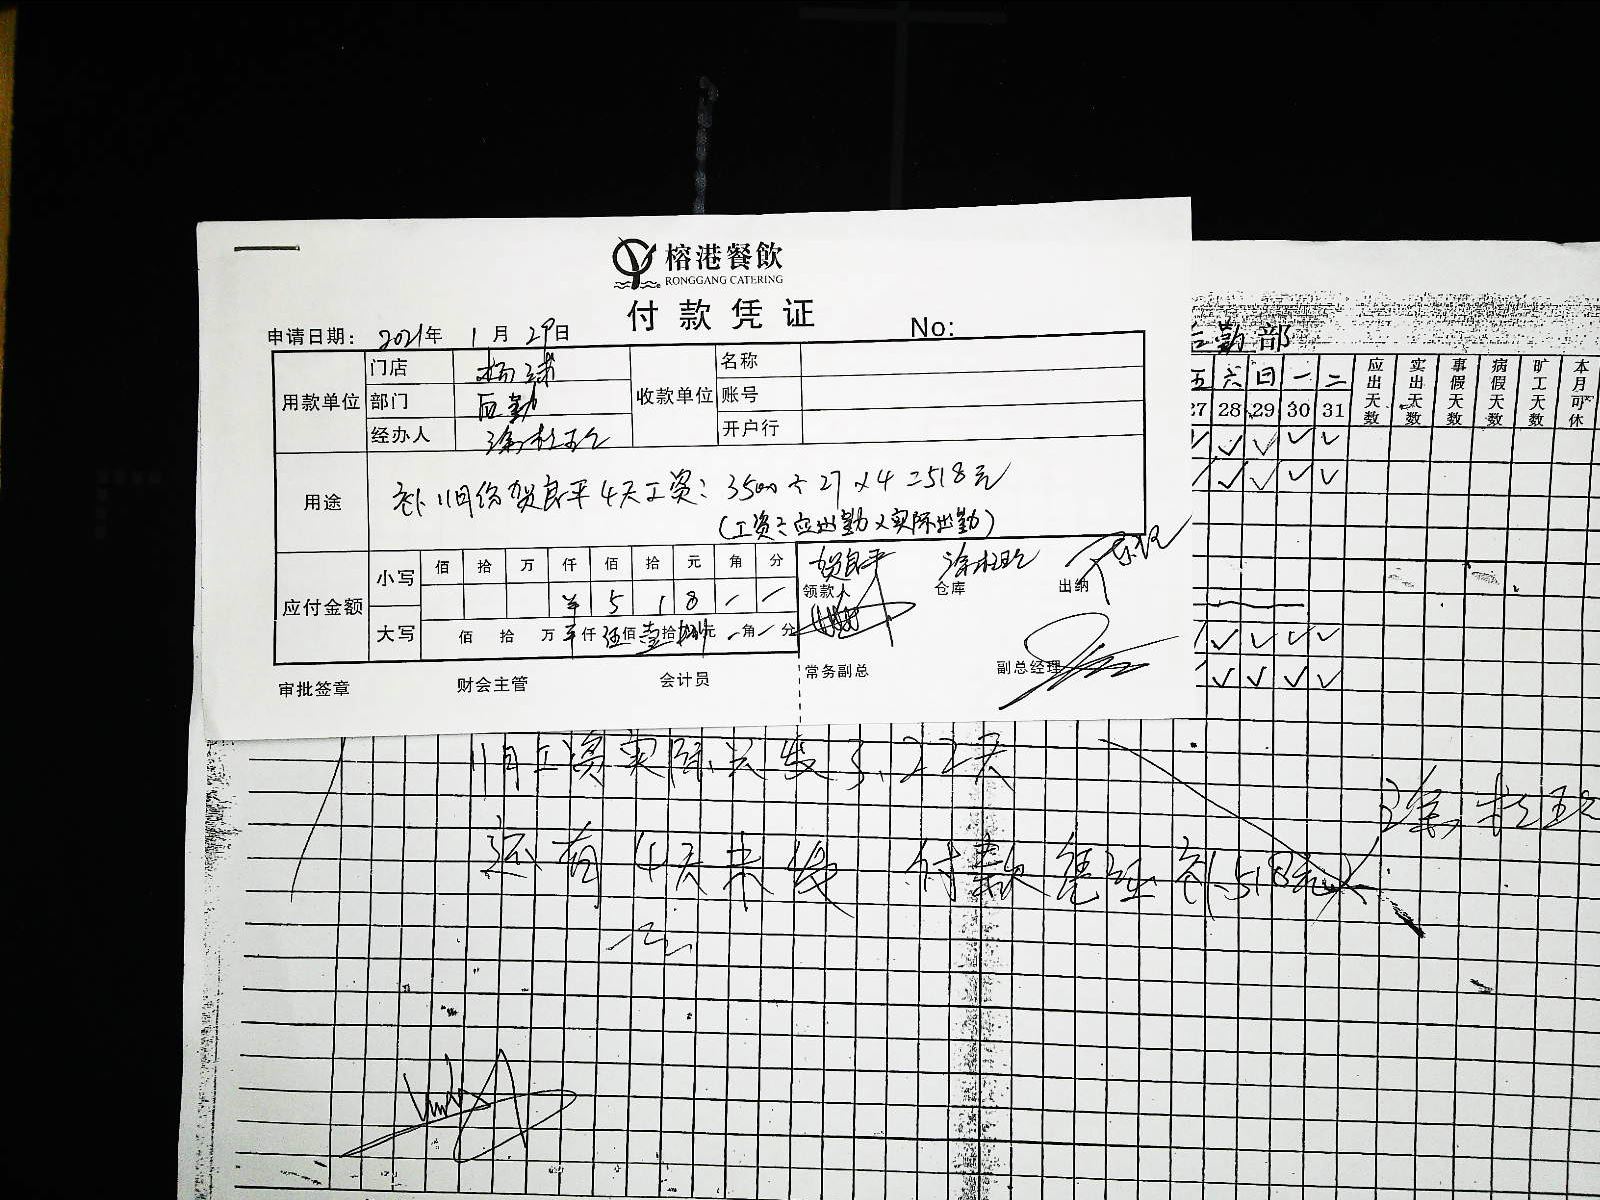 榕港餐飲
RONGGANG CATERING
付款凭证
申请日期: 2021年 1月 29日 No:
用款单位 门店 杨球 收款单位 名称
部门 后勤 账号
经办人 涂桂玲 开户行
用途 补11月份贺良平4天工资: 3500÷27×4=518元
(工资÷应出勤×实际出勤)
应付金额 小写 佰 拾 万 仟 佰 拾 元 角 分
¥ 5 1 8 — —
大写 佰 拾 万 仟 伍佰 壹拾 捌元 —角 —分
贺良平 涂桂玲
领款人 仓库 出纳
审批签章 财会主管 会计员 常务副总 副总经理
后勤部
五 六 日 一 二 应出天数 实出天数 事假天数 病假天数 旷工天数 本月可休
27 28 29 30 31
11月工资实际只发了22天
涂桂玲
还有4天未发 付款凭证补518元